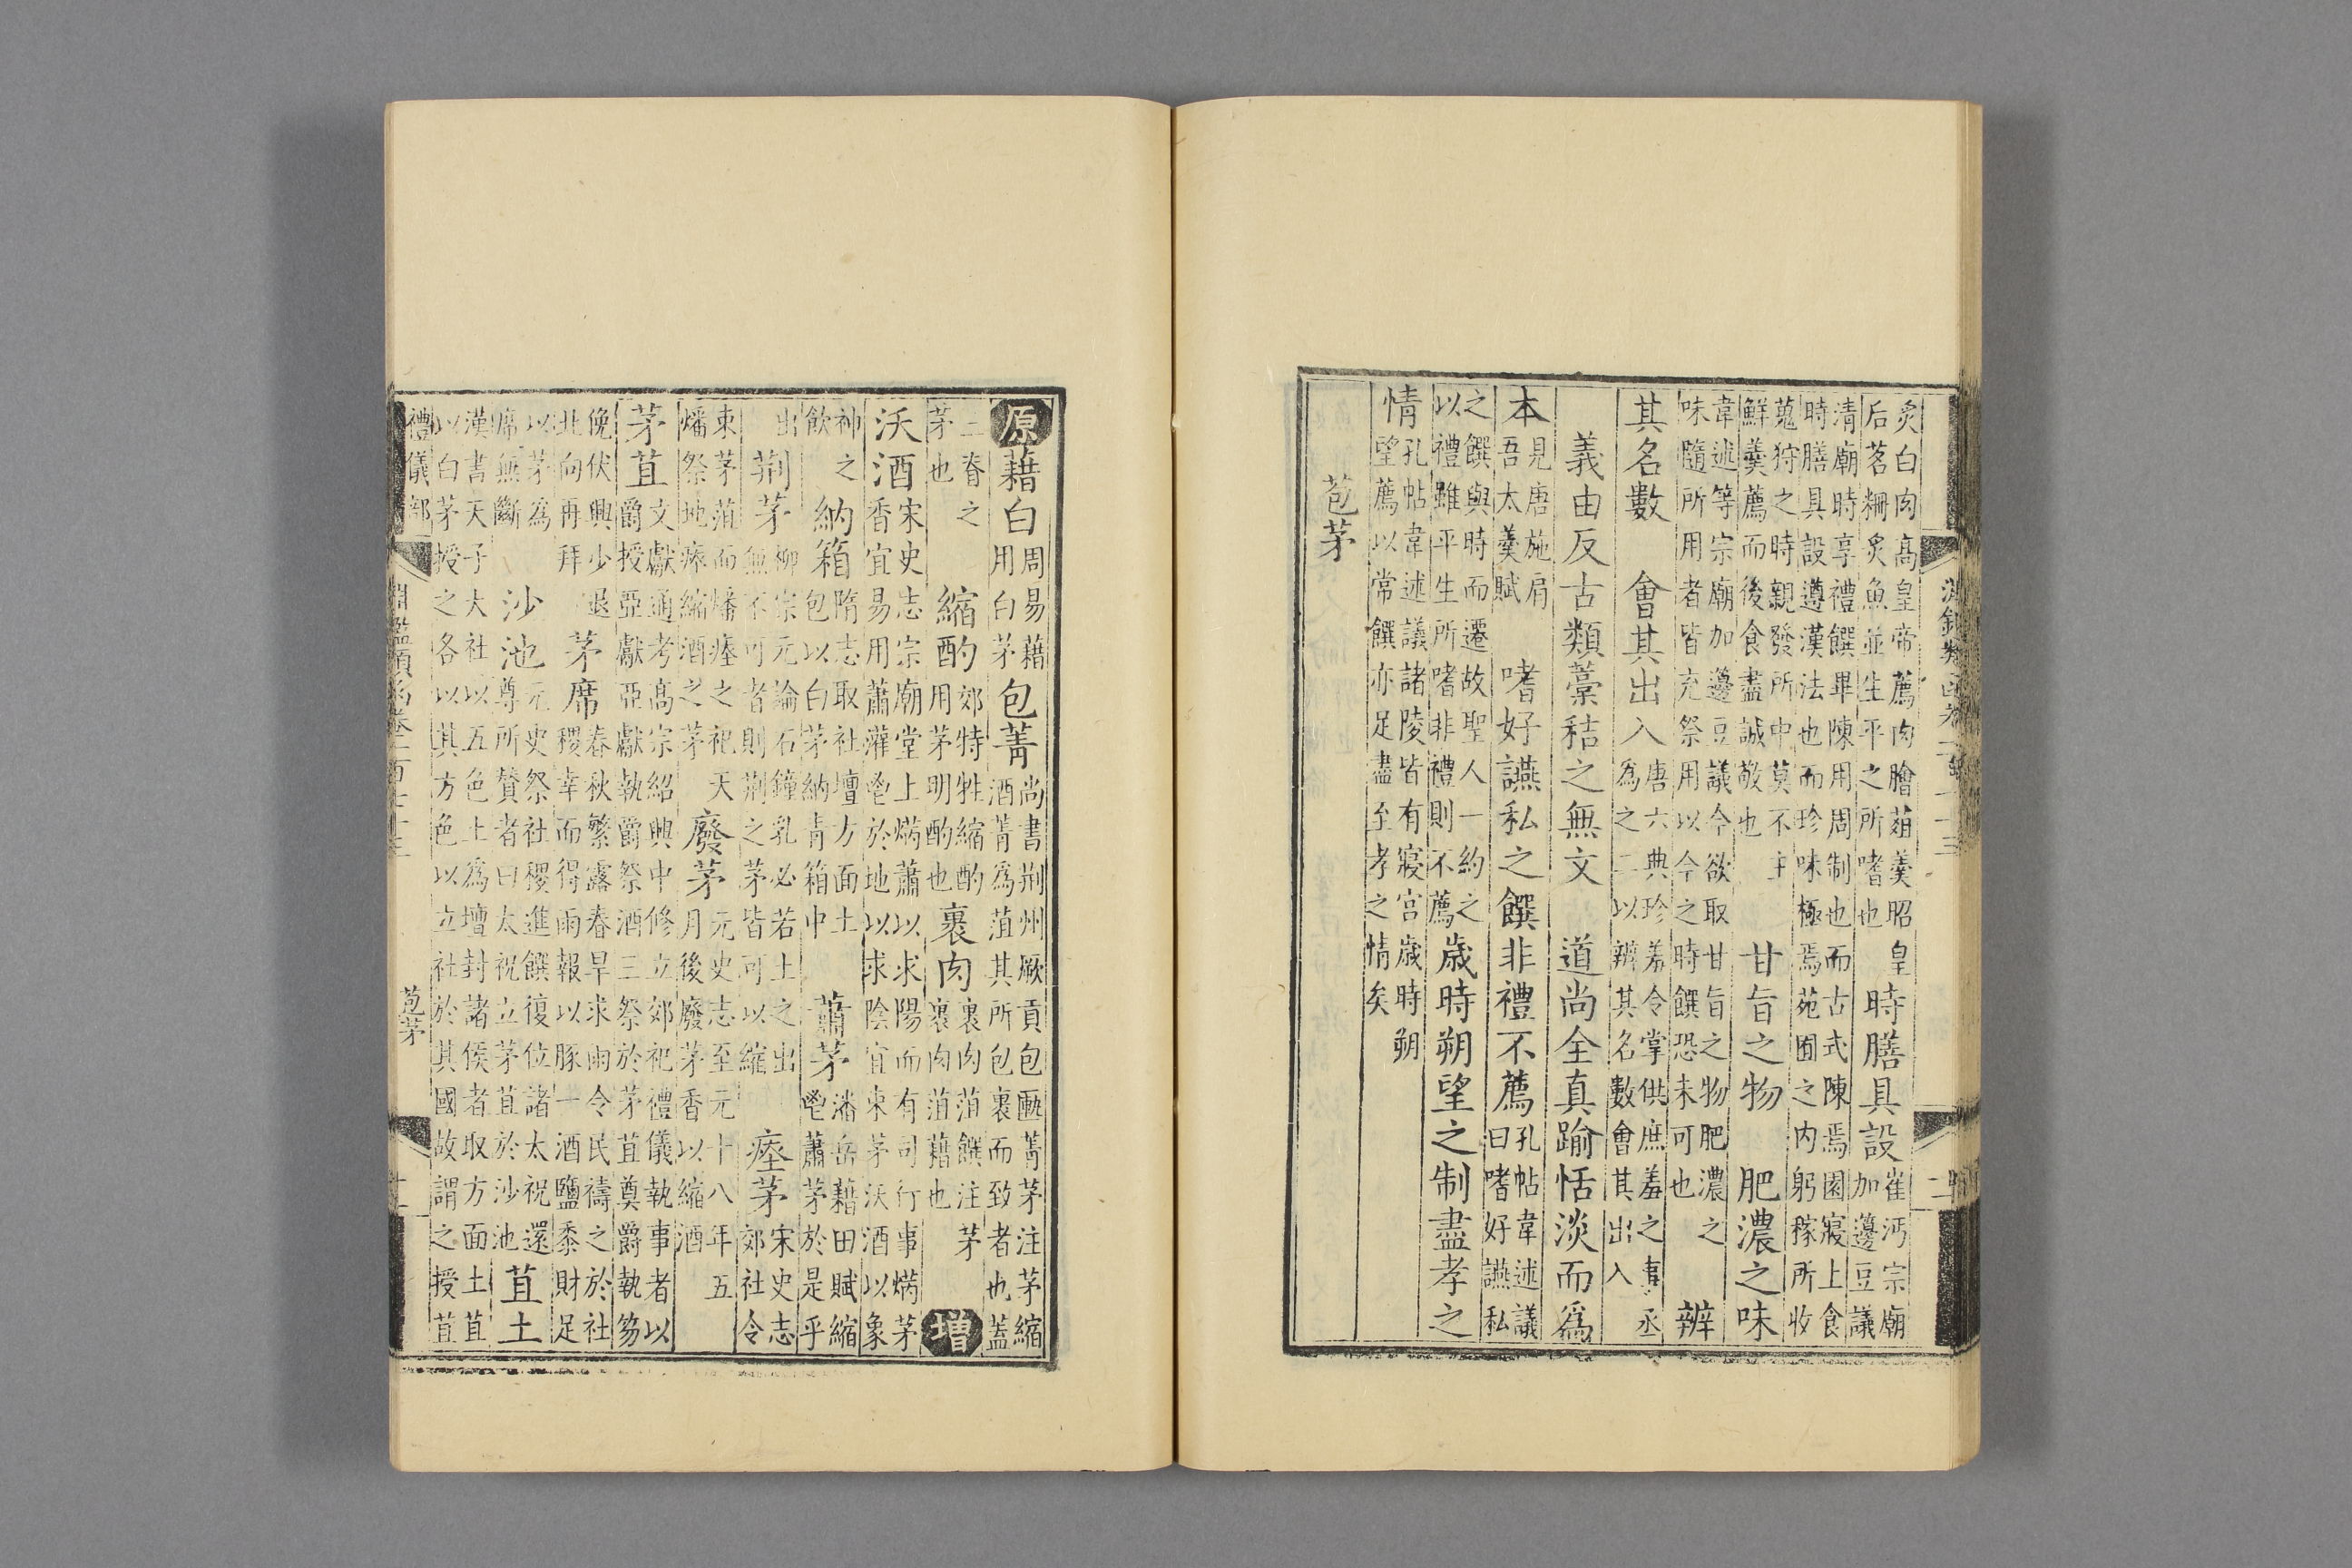 炙白肉高皇帝薦肉膾葅羹昭皇
后茗粣炙魚並生平之所嗜也
時膳具設
崔沔宗廟
加籩豆議
清廟時享禮饌畢陳用周制也而古式陳焉園寢上食
時膳具設遵漢法也而珍味極焉苑囿之內躬稼所收
蒐狩之時親發所中莫不
鮮羹薦而後食盡誠敬也
甘旨之物　肥濃之味
韋述等宗廟加籩豆議今欲取甘旨之物肥濃之
味隨所用者皆充祭用以今之時饌恐未可也
辨
其名數　會其出入
唐六典珍羞令掌供庶羞之事丞
為之二以辨其名數會其出入
義由反古類藁秸之無文　道尚全真踰恬淡而爲
本
見唐施肩
吾太羹賦
嗜好讌私之饌非禮不薦
孔帖韋述議
曰嗜好讌私
之饌與時而遷故聖人一約之
以禮雖平生所嗜非禮則不薦
歲時朔望之制盡孝之
情
孔帖韋述議諸陵皆有寢宮歲時朔
望薦以常饌亦足盡至孝之情矣
苞茅
原
藉白
周易藉
用白茅
包菁
尚書荆州厥貢包匭菁茅注茅縮
酒菁爲葅其所包裹而致者也蓋
三脊之
茅也
縮酌
郊特牲縮酌
用茅明酌也
裹肉
裏肉葅饌注茅
裹肉葅藉也
增
沃酒
宋史志宗廟堂上焫蕭以求陽而有司行事焫茅
香宜易用蕭灌鬯於地以求陰宜束茅沃酒以象
神之
飲
納箱
隋志取社壇方面土
包以白茅納青箱中
蕭茅
潘岳藉田賦縮
鬯蕭茅於是乎
出
荆茅
柳宗元論石鐘乳必若土之出
無不可者則荆之茅皆可以縮
瘞茅
宋史志
郊社令
束茅葅而燔瘞之祀天
燔祭地瘞縮酒之茅
廢茅
元史志至元十八年五
月後廢茅香以縮酒
茅苴
文獻通考高宗紹興中修立郊祀禮儀執事者以
爵授亞獻亞獻執爵祭酒三祭於茅苴奠爵執笏
俛伏興少退
北向再拜
茅席
春秋繁露春旱求雨令民禱之於社
稷幸而得雨報以豚一酒鹽黍財足
以茅爲
席無斷
沙池
元史祭社稷進饌復位諸太祝還
尊所贊者曰太祝立茅苴於沙池
苴土
漢書天子大社以五色土爲壇封諸侯者取方面土苴
以白茅授之各以其方色以立社於其國故謂之授苴
禮儀部
淵鑑類函卷一百七十三
苞茅